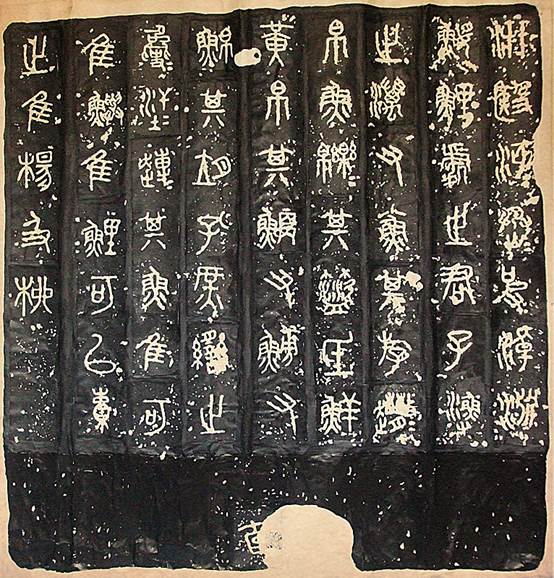 汧殹沔丞皮淖淵
鰋鯉處之君子漁
之澫又小魚其斿趣
帛魚皪其盜氐鮮
黃帛其鯾又鰟又
䱉其孔庶臠之
夐汗趍其魚隹可
隹鱮隹鯉可以橐
之隹楊及柳